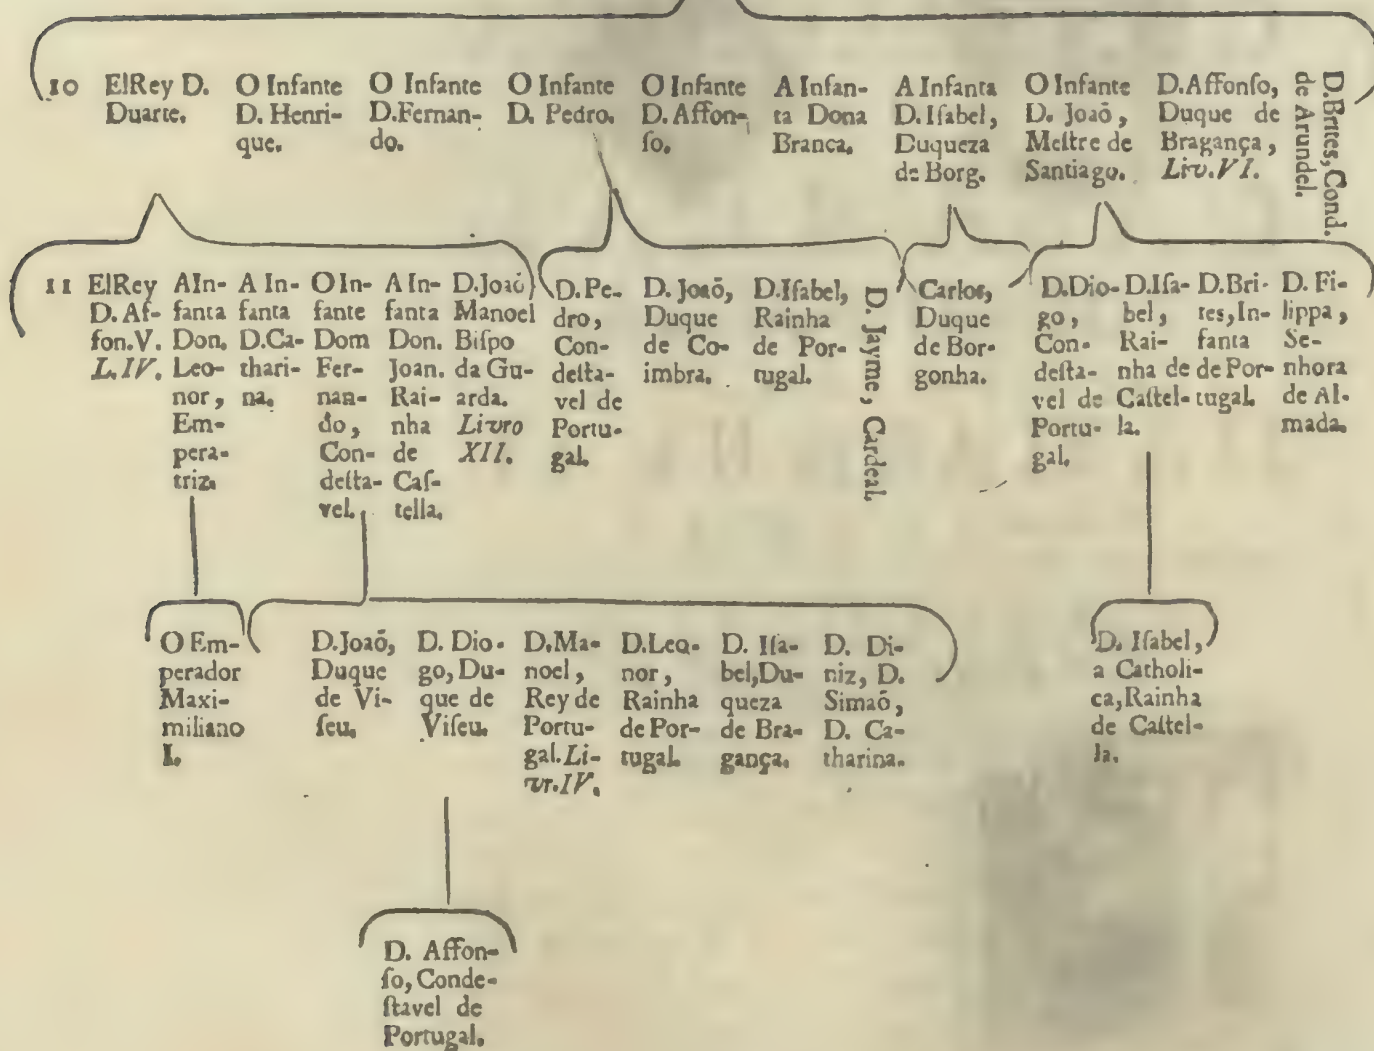 10
ElRey D.
Duarte.
O Infante
D. Henri-
que.
O Infante
D.Fernan-
do.
O Infante
D. Pedro.
O Infante
D. Affon-
ſo.
A Infan-
ta Dona
Branca.
A Infanta
D.Iſabel,
Duqueza
de Borg.
O Infante
D. Joaõ,
Meſtre de
Santiago.
D.Affonſo,
Duque de
Bragança,
Liv.VI.
D.Brites, Cond.
de Arundel.
11
ElRey
D. Af-
fon.V.
L.IV.
A In-
fanta
Don.
Leo-
nor,
Em-
pera-
triz.
A In-
fanta
D.Ca-
thari-
na.
O In-
fante
Dom
Fer-
nan-
do,
Con-
deſta-
vel.
A In-
fanta
Don.
Joan.
Rai-
nha
de
Caſ-
tella.
D.Joaõ
Manoel
Biſpo
da Gu-
arda.
Livro
XII.
D.Pe-
dro,
Con-
deſta-
vel de
Portu-
gal.
D. Joaõ,
Duque
de Co-
imbra.
D.Iſabel,
Rainha
de Por-
tugal.
D. Jayme, Cardeal.
Carlos,
Duque
de Bor-
gonha.
D.Dio-
go,
Con-
deſta-
vel de
Portu-
gal.
D.Iſa-
bel,
Rai-
nha de
Caſtel-
la.
D.Bri-
tes,In-
fanta
de Por-
tugal.
D. Fi-
lippa,
Se-
nhora
de Al-
mada.
O Em-
perador
Maxi-
miliano
I.
D.Joaõ,
Duque
de Vi-
ſeu.
D. Dio-
go, Du-
que de
Viſeu.
D.Ma-
noel,
Rey de
Portu-
gal.Li-
vr.IV.
D.Leo-
nor,
Rainha
de Por-
tugal.
D. Iſa-
bel,Du-
queza
de Bra-
gança.
D. Di-
niz, D.
Simaõ,
D. Ca-
tharina.
D. Iſabel,
a Catholi-
ca,Rainha
de Caſtel-
la.
D. Affon-
ſo, Conde-
ſtavel de
Portugal.